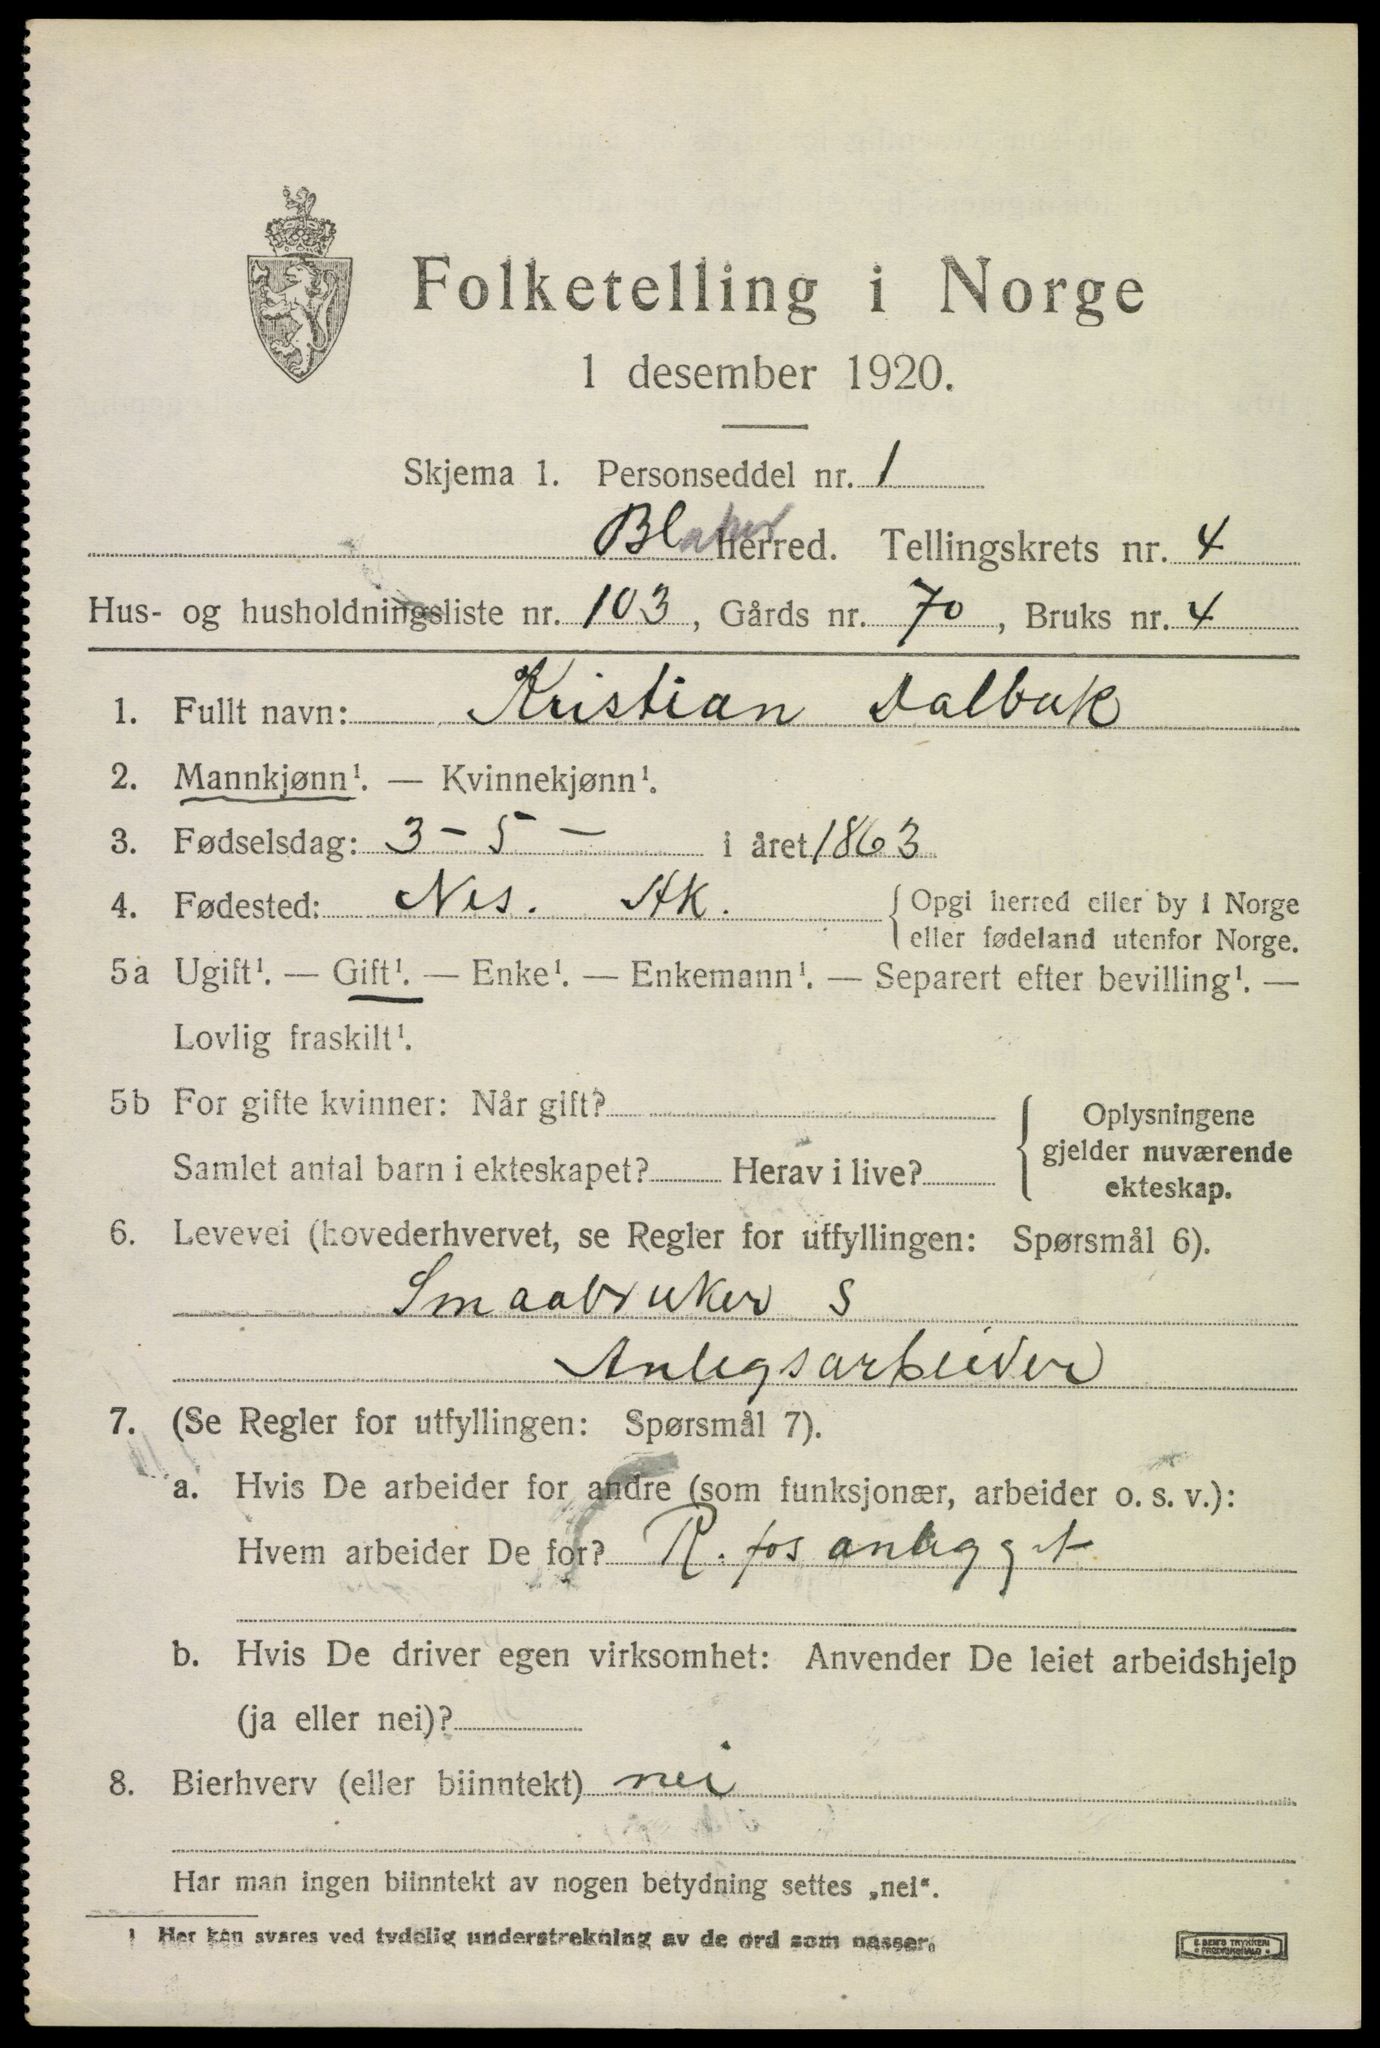 Folketelling i Norge
1 desember 1920.
Skjema 1. Personseddel nr. 1
Blaker herred. Tellingskrets nr. 4
Hus- og husholdningsliste nr. 103, Gårds nr. 70, Bruks nr. 4
1. Fullt navn: Kristian Dalbak
2. Mannkjønn¹. — Kvinnekjønn¹.
3. Fødselsdag: 3 - 5 - i året 1863
4. Fødested: Nes. Ak. { Opgi herred eller by i Norge
eller fødeland utenfor Norge.
5a Ugift¹. — Gift¹. — Enke¹. — Enkemann¹. — Separert efter bevilling¹. —
Lovlig fraskilt¹.
5b For gifte kvinner: Når gift?
Samlet antal barn i ekteskapet? Herav i live?
Oplysningene
gjelder nuværende
ekteskap.
6. Levevei (hovederhvervet, se Regler for utfyllingen: Spørsmål 6).
Smaabruker S
Anlegsarbeider
7. (Se Regler for utfyllingen: Spørsmål 7).
a. Hvis De arbeider for andre (som funksjonær, arbeider o. s. v.):
Hvem arbeider De for? R.fosanlegget
b. Hvis De driver egen virksomhet: Anvender De leiet arbeidshjelp
(ja eller nei)?
8. Bierhverv (eller biinntekt) nei
Har man ingen biinntekt av nogen betydning settes „nei“.
1 Her kan svares ved tydelig understrekning av de ord som passer.